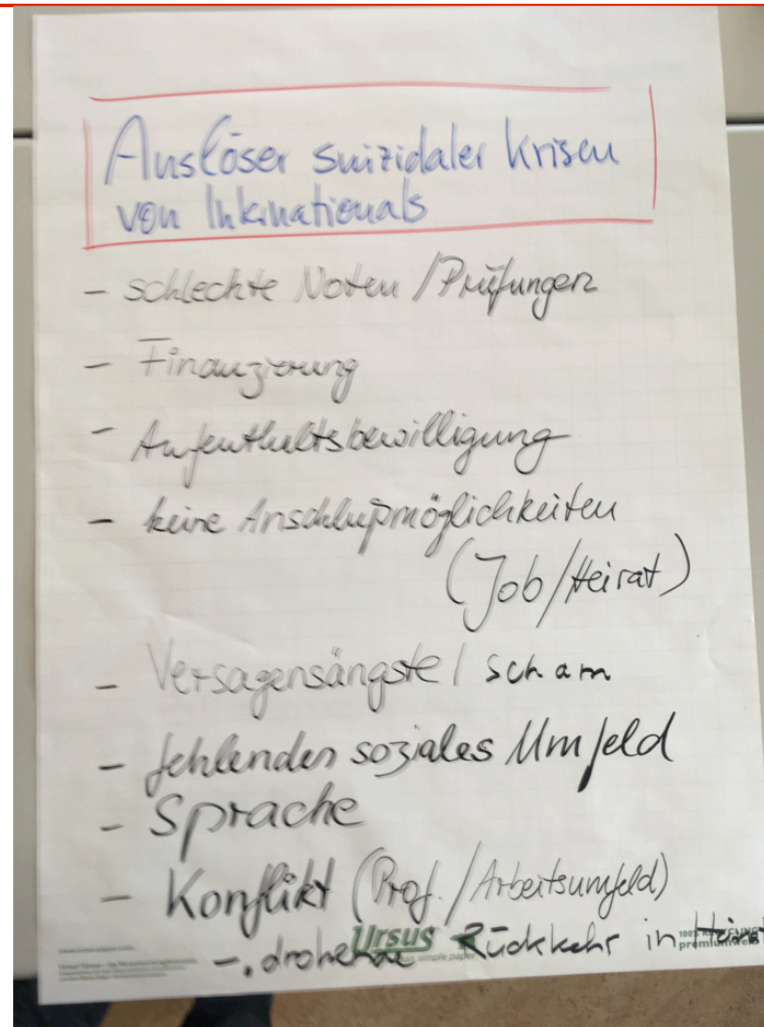 Auslöser suizidaler Krisen
von Internationals
- schlechte Noten / Prüfungen
- Finanzierung
- Aufenthaltsbewilligung
- keine Anschlußmöglichkeiten
(Job/Heirat)
- Versagensängste / Scham
- fehlendes soziales Umfeld
- Sprache
- Konflikt (Prof. / Arbeitsumfeld)
- drohende Rückkehr in Heimat
Ursus
simple paper
100%
premium